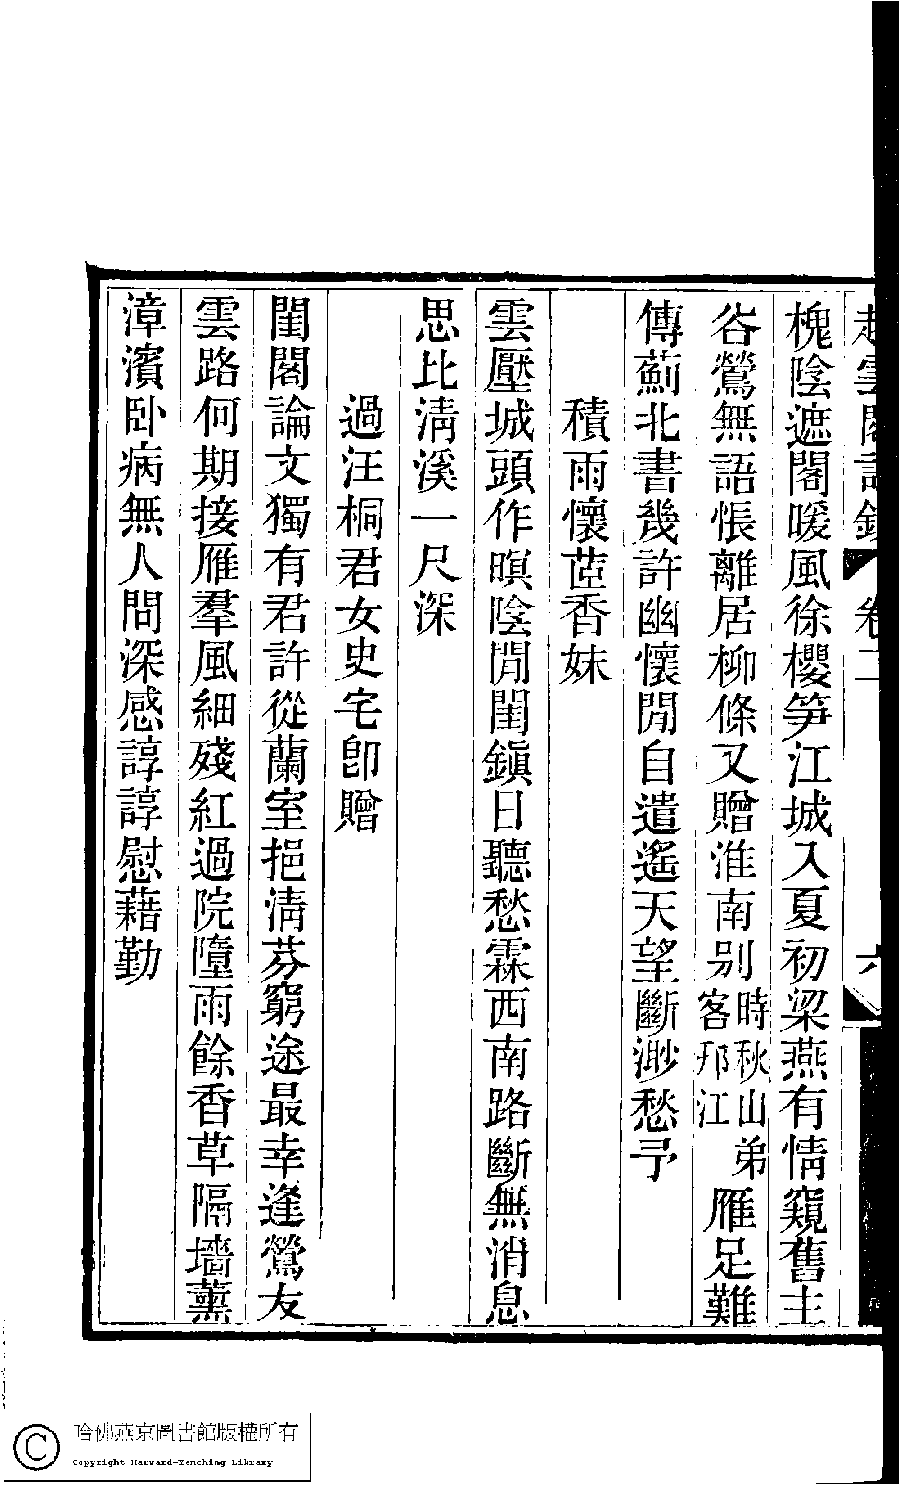 槐陰遮閣暖風徐櫻笋江城入夏初梁燕有情窺舊主
谷鶯無語悵離居柳條又贈淮南別時秋山弟客邗江雁足難
傳薊北書幾許幽懷閒自遣遙天望斷渺愁予
積雨懷茝香妹
雲壓城頭作暝陰閒閨鎭日聽愁霖西南路斷無消息
思比淸溪一尺深
過汪桐君女史宅卽贈
閨閣論文獨有君許從蘭室挹淸芬窮途最幸逢鶯友
雲路何期接雁羣風細殘紅過院墮雨餘香草隔墻薰
漳濱卧病無人問深感諄諄慰藉勤
哈佛燕京圖書館版權所有
Copyright Harvard-Yenching Library